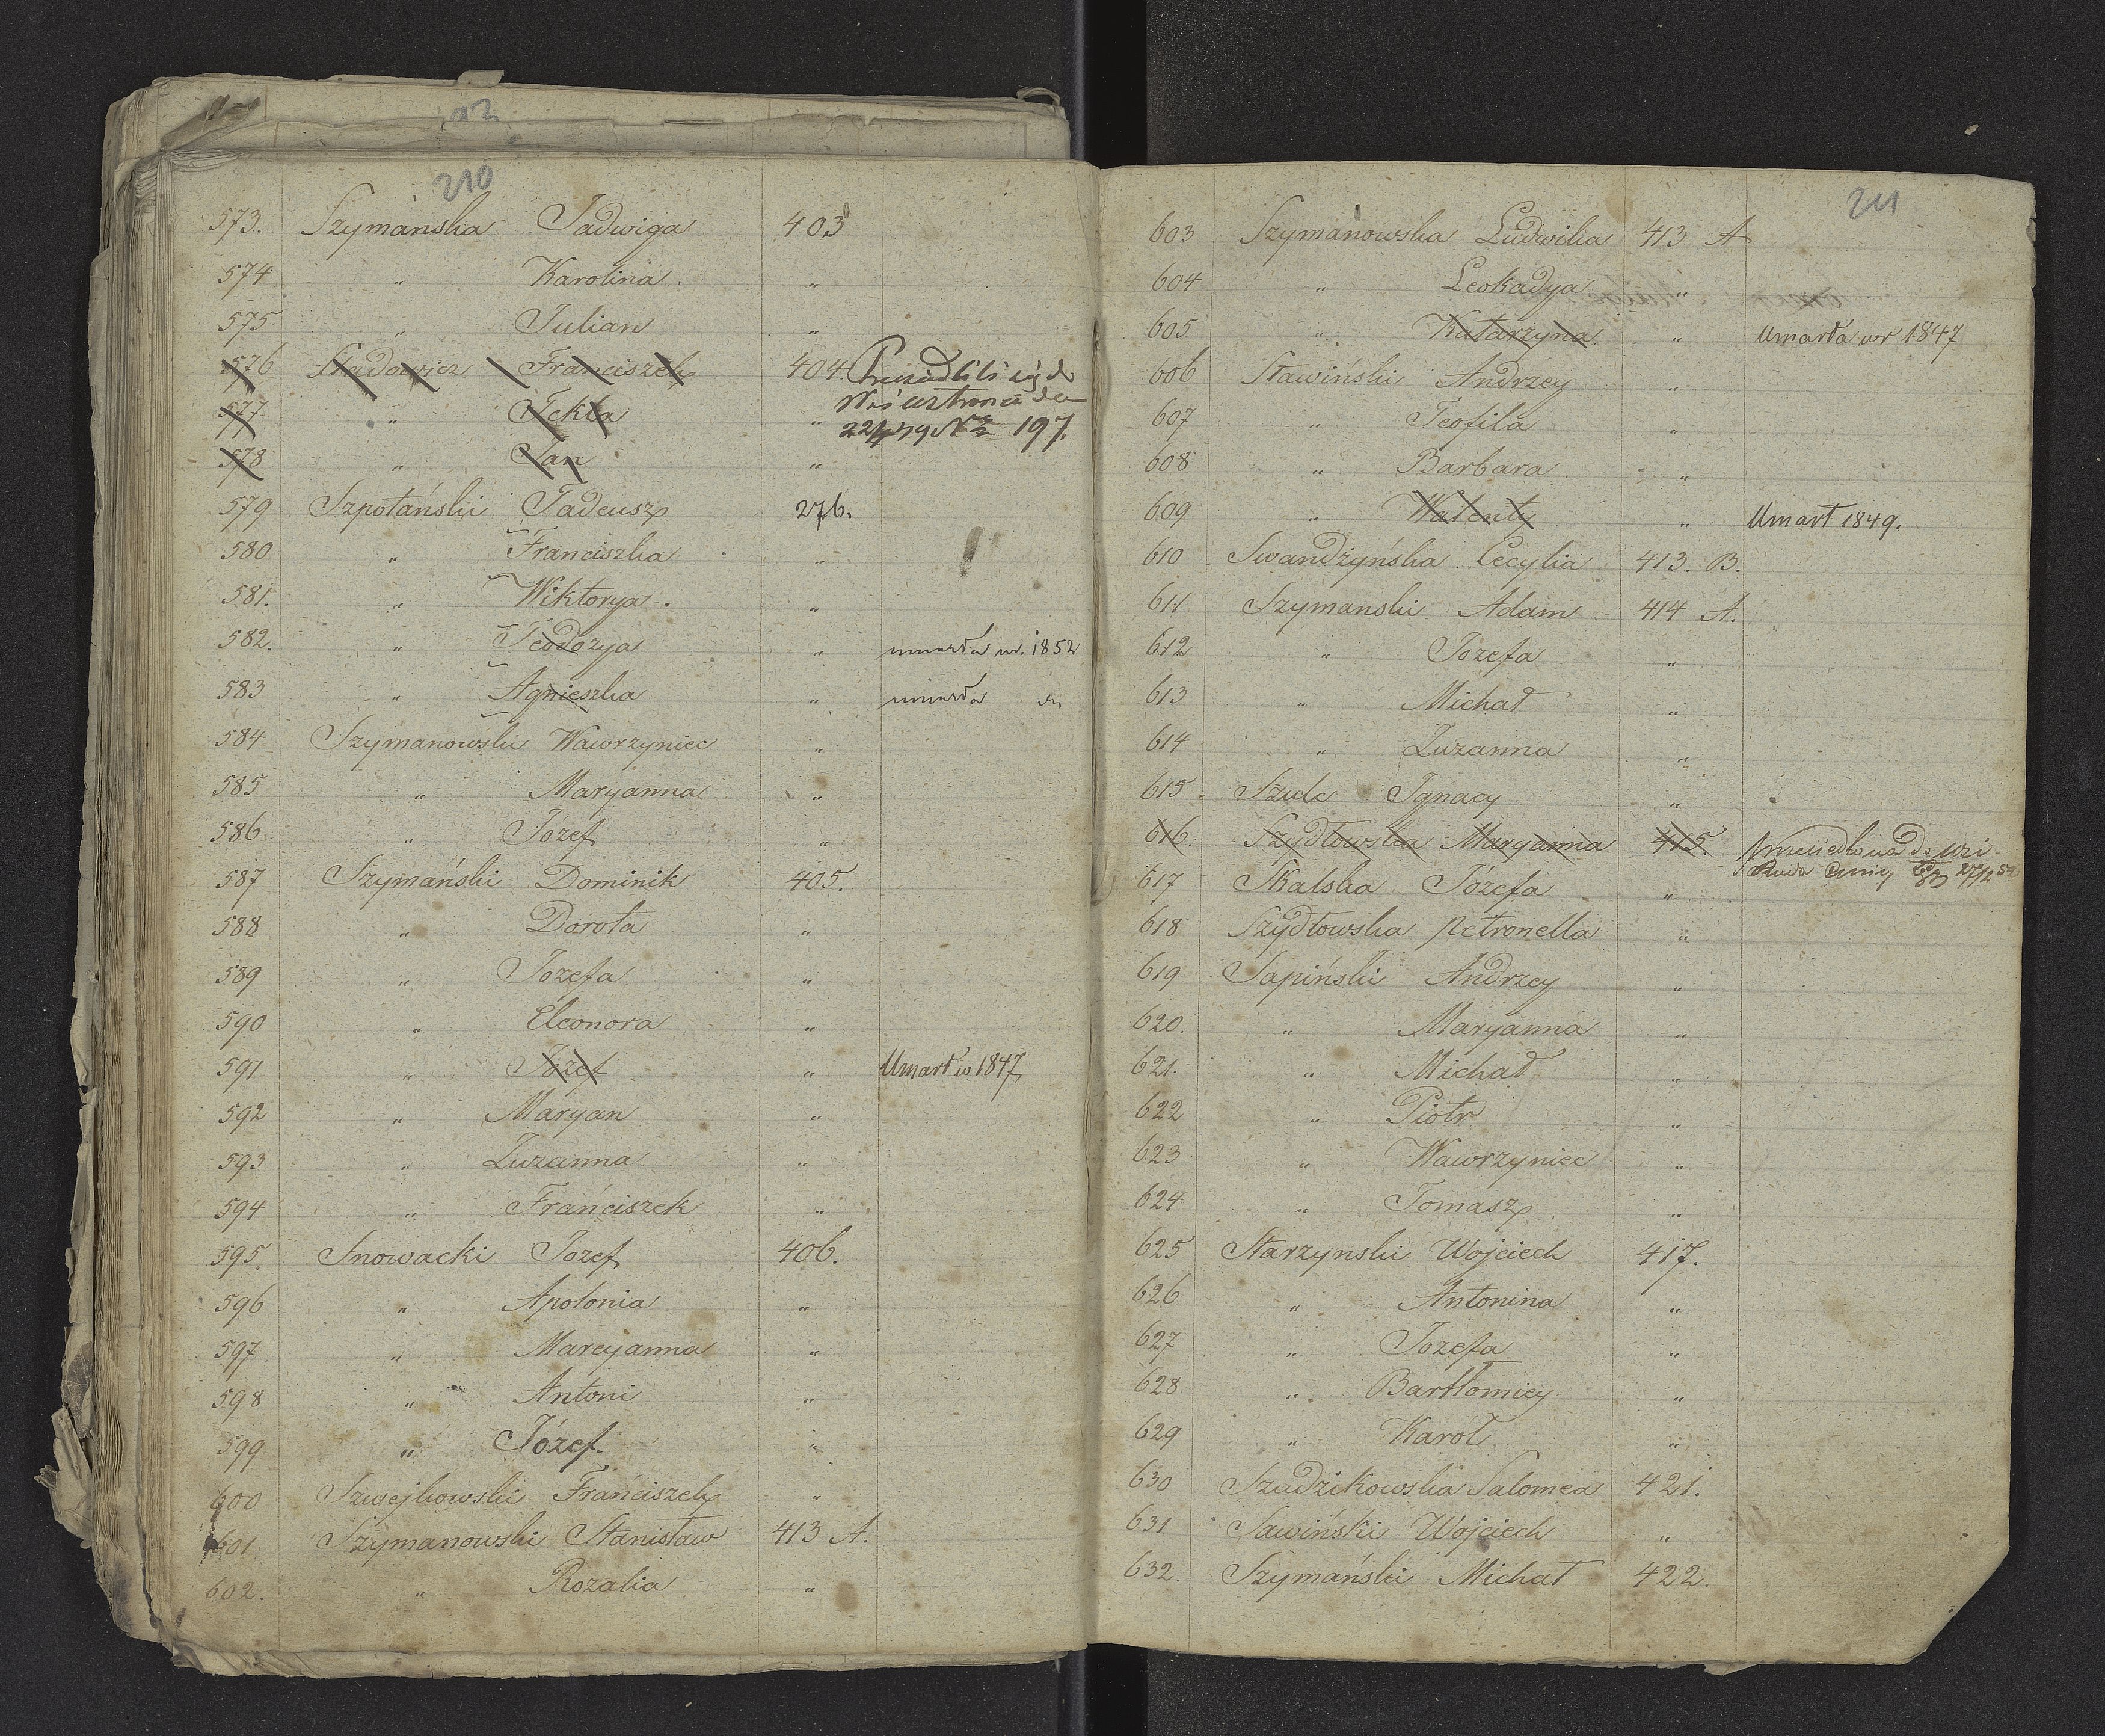 210
573. Szymańska Jadwiga 403
574 " Karolina. "
575 " Julian "
576 Stadowicz Franciszek 404.
577 " Tekla "
578 " Jan "
197.
579 Szpotański Tadeusz 276.
580 " Franciszka "
581. " Wiktorya. "
582. " Teodozya " umarła w r. 1852
583 " Agnieszka " umarła
584 Szymanowski Wawrzyniec "
585 " Maryanna "
586 " Józef "
587 Szymański Dominik 405.
588 " Dorota "
589 " Józefa "
590 " Eleonora "
591 " Józef " Umarł w 1847
592 " Maryan "
593 " Zuzanna "
594 " Franciszek "
595. Snowacki Jozef 406.
596 " Apolonia "
597 " Maryanna "
598 " Antoni "
599 " Józef "
600 Szwejkowski Franciszek "
601 Szymanowski Stanisław 413 A.
602. " Rozalia "
211
603 Szymanowska Ludwika 413 A
604 " Leokadya "
605 " Katarzyna " Umarła w r 1847
606 Sławiński Andrzey "
607 " Teofila "
608 " Barbara "
609 " Walenty " Umarł 1849.
610 Swandżyńska Cecylia 413. B.
611 Szymanski Adam 414 A.
612 " Józefa "
613 " Michał "
614 " Zuzanna "
615 Szulc Ignacy "
616. Szydłowska Maryanna 415. przesiedlona do wsi
Ruda
617 Skalska Józefa "
618 Szydłowska Petronella "
619 Sapiński Andrzey "
620. " Maryanna "
621. " Michał "
622 " Piotr "
623 " Wawrzyniec "
624 " Tomasz "
625 Starzynski Wojciech 417.
626 " Antonina "
627 " Jozefa "
628 " Bartłomiey "
629 " Karól "
630 Szadzikowska Salomea 421.
631 Sawiński Wojciech "
632. Szymański Michał 422.